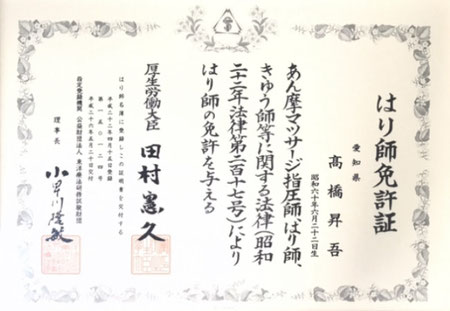 はり師免許証
愛知県
髙橋昇吾
昭和六十年六月二十二日生
あん摩マツサージ指圧師、はり師、
きゆう師等に関する法律(昭和
二十二年法律第二百十七号)により
はり師の免許を与える
厚生労働大臣 田村憲久
はり師名簿に登録しこの証明書を交付する
平成二十六年五月二十日交付
指定登録機関 公益財団法人 東洋療法研修試験財団
理事長